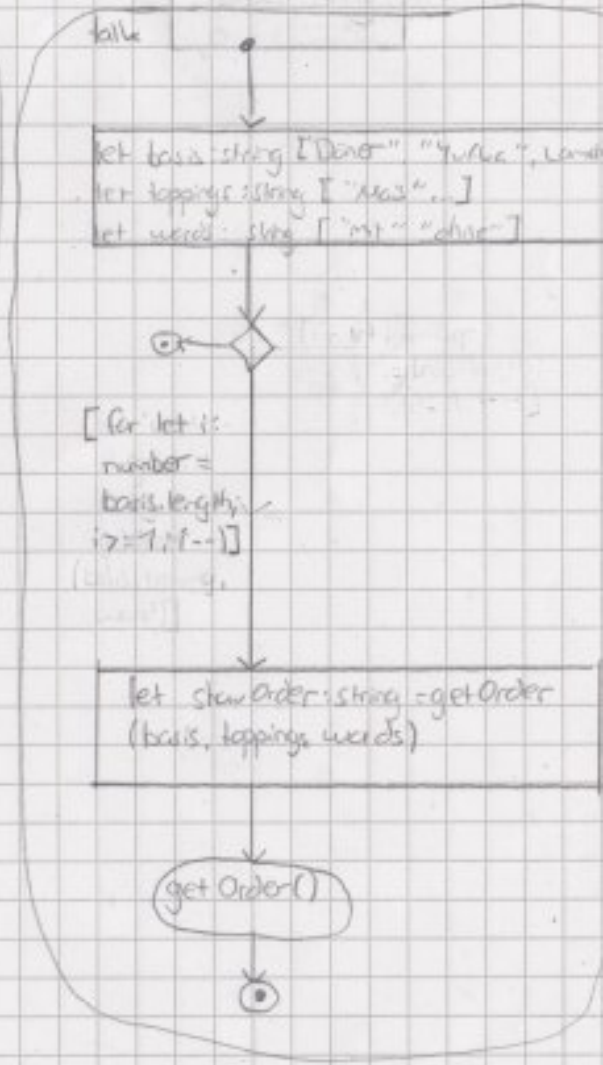 let basis: string ["Döner", "Yufka",
let toppings: string ["Mais"...]
let words: string ["mit" "ohne"]
[for let i:
number =
basis.length;
i>=1; i--)]
let showOrder: string = getOrder
(basis, toppings, words)
getOrder()